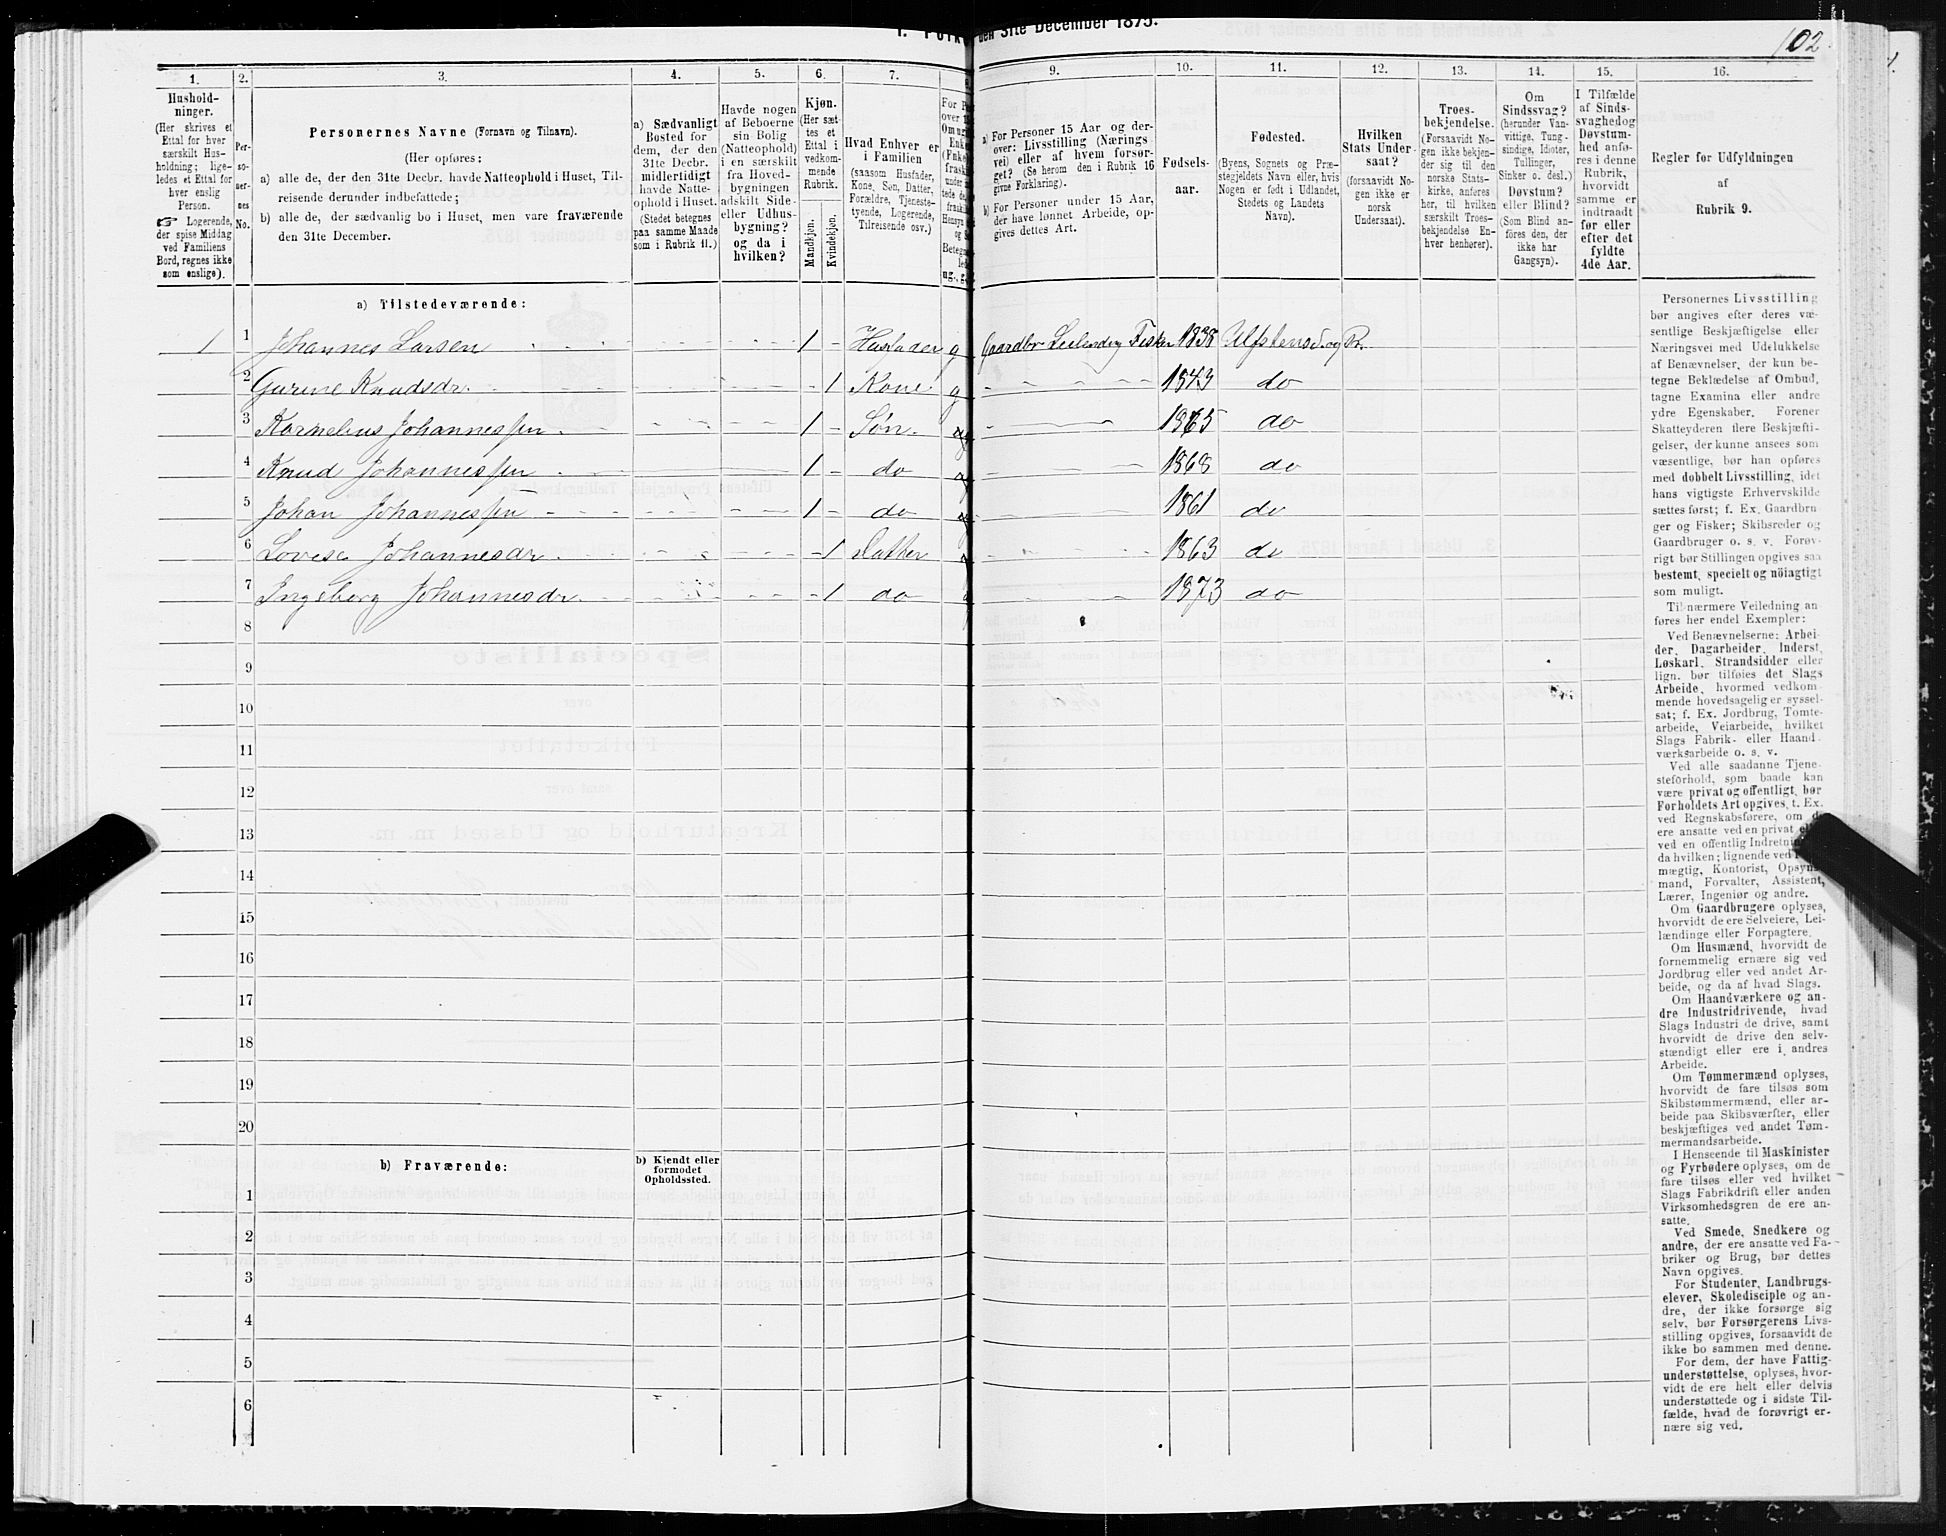 I. Folke den 31te December 1875.
102
1. 2. 3. 4. 5. 6. 7. 9. 10. 11. 12. 13. 14. 15. 16.
Hushold-
ninger.
(Her skrives et
Ettal for hver
særskilt Hus-
holdning; lige-
ledes et Ettal for
hver enslig
Person.
☞ Logerende,
der spise Middag
ved Familiens
Bord, regnes ikke
som enslige).
Per-
so-
ner-
nes
No.
Personernes Navne (Fornavn og Tilnavn).
(Her opføres:
a) alle de, der den 31te Decbr. havde Natteophold i Huset, Til-
reisende derunder indbefattede;
b) alle de, der sædvanlig bo i Huset, men vare fraværende
den 31te December.
a) Sædvanligt
Bosted for
dem, der den
31te Decbr.
midlertidigt
havde Natte-
ophold i Huset.
(Stedet betegnes
paa samme Maade
som i Rubrik 11.)
Havde nogen
af Beboerne
sin Bolig
(Natteophold)
i en særskilt
fra Hoved-
bygningen
adskilt Side-
eller Udhus-
bygning?
og da i
hvilken?
Kjøn.
(Her sæt-
tes et
Ettal i
vedkom-
mende
Rubrik.
Mandkjøn.
Kvindekjøn.
Hvad Enhver er
i Familien
(saasom Husfader,
Kone, Søn, Datter,
Forældre, Tjeneste-
tyende, Logerende,
Tilreisende osv.)
a) For Personer 15 Aar og der-
over: Livsstilling (Nærings-
vei) eller af hvem forsør-
get? (Se herom den i Rubrik 16
givne Forklaring).
b) For Personer under 15 Aar,
der have lønnet Arbeide, op-
gives dettes Art.
Fødsels-
aar.
Fødested.
(Byens, Sognets og Præ-
stegjeldets Navn eller, hvis
Nogen er født i Udlandet,
Stedets og Landets
Navn).
Hvilken
Stats Under-
saat?
(forsaavidt No-
gen ikke er
norsk
Undersaat).
Troes-
bekjendelse.
(Forsaavidt No-
gen ikke bekjen-
der sig til den
norske Stats-
kirke, anføres
her, til hvilken
særskilt Troes-
bekjendelse En-
hver henhører).
Om
Sindssvag?
(herunder Van-
vittige, Tung-
sindige, Idioter,
Tullinger,
Sinker o. desl.)
Døvstum?
eller Blind?
(Som Blind an-
føres den, der
ikke har
Gangsyn).
I Tilfælde
af Sinds-
svaghedog
Døvstum-
hed anfø-
res i denne
Rubrik,
hvorvidt
samme er
indtraadt
før eller
efter det
fyldte
4de Aar.
Regler for Udfyldningen
af
Rubrik 9.
a) Tilstedeværende:
1 1 Johannes Larsen 1 Husfader g Gaardbr Leilending Fisker 1838 Ulfstens S. og Pr.
2 Gurine Knudsdr. 1 Kone g 1843 do
3 Kornelius Johannessen 1 Søn 1865 do
4 Knud Johannessen 1 do 1868 do
5 Johan Johannessen 1 do 1861 do
6 Lovise Johannesdr. 1 Datter 1863 do
7 Ingeborg Johannesdr. 1 do 1873 do
8
9
10
11
12
13
14
15
16
17
18
19
20
b) Fraværende:
b) Kjendt eller
formodet
Opholdssted.
1
2
3
4
5
6
Personernes Livsstilling
bør angives efter deres væ-
sentlige Beskjæftigelse eller
Næringsvei med Udelukkelse
af Benævnelser, der kun be-
tegne Beklædelse af Ombud,
tagne Examina eller andre
ydre Egenskaber. Forener
Skatteyderen flere Beskjæfti-
gelser, der kunne ansees som
væsentlige, bør han opføres
med dobbelt Livsstilling, idet
hans vigtigste Erhvervskilde
sættes først; f. Ex. Gaardbru-
ger og Fisker; Skibsreder og
Gaardbruger o. s. v. Forøv-
rigt bør Stillingen opgives saa
bestemt, specielt og nøiagtigt
som muligt.
Til nærmere Veiledning an-
føres her endel Exempler:
Ved Benævnelserne: Arbei-
der, Dagarbeider, Inderst,
Løskarl, Strandsidder eller
lign. bør tilføies det Slags
Arbeide, hvormed vedkom-
mende hovedsagelig er syssel-
sat; f. Ex. Jordbrug, Tomte-
arbeide, Veiarbeide, hvilket
Slags Fabrik- eller Haand-
værksarbeide o. s. v.
Ved alle saadanne Tjene-
steforhold, som baade kan
være privat og offentligt, bør
Forholdets Art opgives, t. Ex.
ved Regnskabsførere, om de
ere ansatte ved en privat
ved en offentlig Indretning
da hvilken; lignende ved
mægtig, Kontorist, Opsyns-
mand, Forvalter, Assistent,
Lærer, Ingeniør og andre.
Om Gaardbrugere oplyses,
hvorvidt de ere Selveiere, Lei-
lændinge eller Forpagtere.
Om Husmænd, hvorvidt de
fornemmelig ernære sig ved
Jordbrug eller ved andet Ar-
beide, og da af hvad Slags.
Om Haandværkere og an-
dre Industridrivende, hvad
Slags Industri de drive, samt
hvorvidt de drive den selv-
stændigt eller ere i andres
Arbeide.
Om Tømmermænd oplyses,
hvorvidt de fare tilsøs som
Skibstømmermænd, eller ar-
beide paa Skibsværfter, eller
beskjæftiges ved andet Tøm-
mermandsarbeide.
I Henseende til Maskinister
og Fyrbødere oplyses, om de
fare tilsøs eller ved hvilket
Slags Fabrikdrift eller anden
Virksomhedsgren de ere an-
satte.
Ved Smede, Snedkere og
andre, der ere ansatte ved Fa-
briker og Brug, bør dettes
Navn opgives.
For Studenter, Landbrugs-
elever, Skoledisciple og an-
dre, der ikke forsørge sig
selv, bør Forsørgerens Livs-
stilling opgives, forsaavidt de
ikke bo sammen med denne.
For dem, der have Fattig-
understøttelse, oplyses, hvor-
vidt de ere helt eller delvis
understøttede og i sidste Til-
fælde, hvad de forøvrigt er-
nære sig ved.